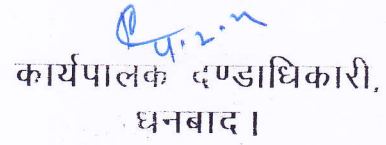 ५.२.५
कार्यपालक दण्डाधिकारी,
धनबाद।